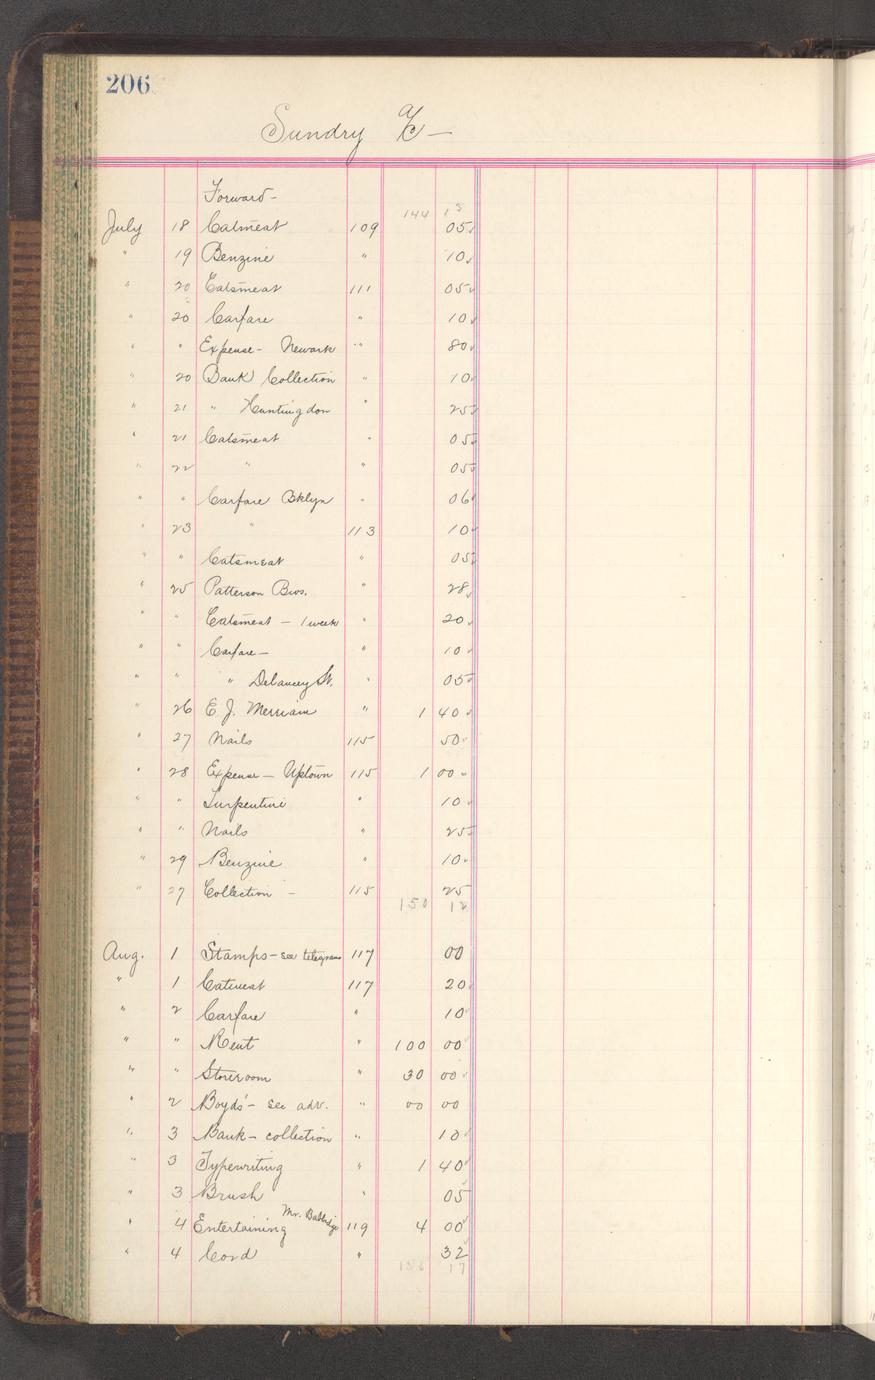 206
Sundry a/c —
Forward -
144 13
July 18 Catmeat 109 05
" 19 Benzine " 10
" 20 Catsmeat 111 05
" 20 Carfare " 10
" " Expense - Newark " 80
" 20 Bank Collection " 10
" 21 " Huntingdon " 25
" 21 Catsmeat " 05
" 22 " " 05
" " Carfare Bklyn " 06
" 23 " 113 10
" " Catsmeat " 05
" 25 Patterson Bros. " 28
" " Catsmeat - 1 week " 20
" " Carfare - " 10
" " " Delancey St. " 05
" 26 E. J. Merriam " 1 40
" 27 Nails 115 50
" 28 Expense - Uptown 115 1 00
" " Turpentine " 10
" " Nails " 25
" 29 Benzine " 10
" 27 Collection - 115 25
150 12
Aug. 1 Stamps - see telegrams 117 00
" 1 Catmeat 117 20
" 2 Carfare " 10
" " Rent " 100 00
" " Storeroom " 30 00
" 2 Boyds' - see adv. " 00 00
" 3 Bank - collection " 10
" 3 Typewriting " 1 40
" 3 Brush " 05
" 4 Entertaining Mr. 119 4 00
" 4 Cord " 32
17